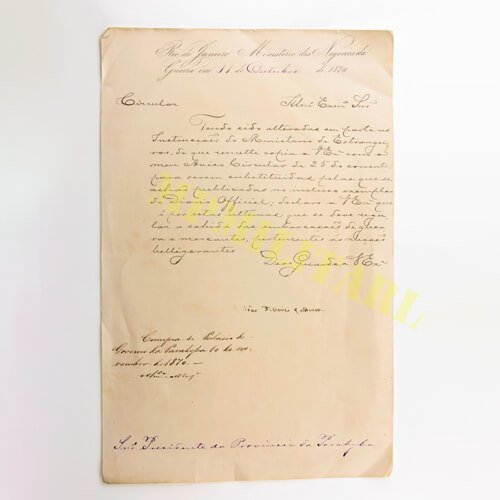 Rio de Janeiro Ministerio dos Negocios da
Guerra em 11 de Outubro de 1870
Circular
Illmo Exmo Snr
Tendo sido alteradas em parte as
Instrucções do Ministerio de Estrangei
ros, de que remetti copia a V Exa com o
meu Aviso Circular de 25 do corrente
para serem substituidas, pelas que se
achão publicadas no incluso exemplar
do Diario Official; declaro a V Exa que
é por estas ultimas que se deve regu
lar a sahida das embarcações de guer
ra e mercantes, pertencentes ás nações
belligerantes
Deos Guarde a V Exa
Cumpra-se Palacio do
Governo da Parahyba 10 de no
vembro de 1870.
Snr Presidente da Provincia da Parahyba
MILITARIA